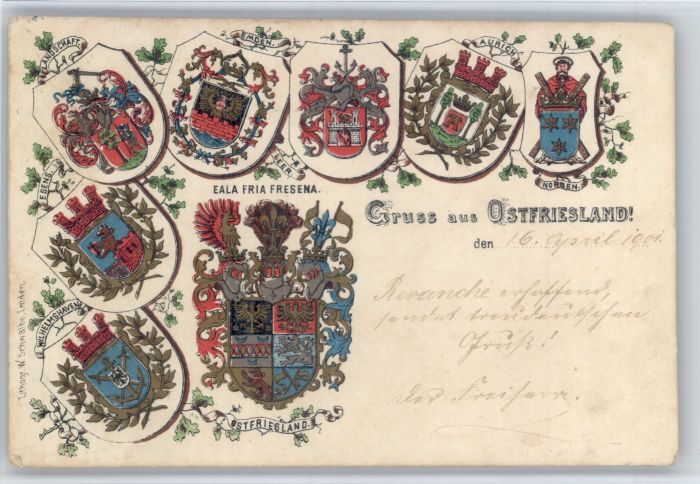 LANDSCHAFT.
EMDEN.
LEER.
AURICH.
NORDEN.
ESENS.
WILHELMSHAVEN.
EALA FRIA FRESENA.
OSTFRIESLAND.
Gruss aus OSTFRIESLAND!
den 16. April 1901.
Revanche erhoffend,
sendet treudeutschen
Gruß!
Der Freiherr.
W. Schwalbe, Emden.